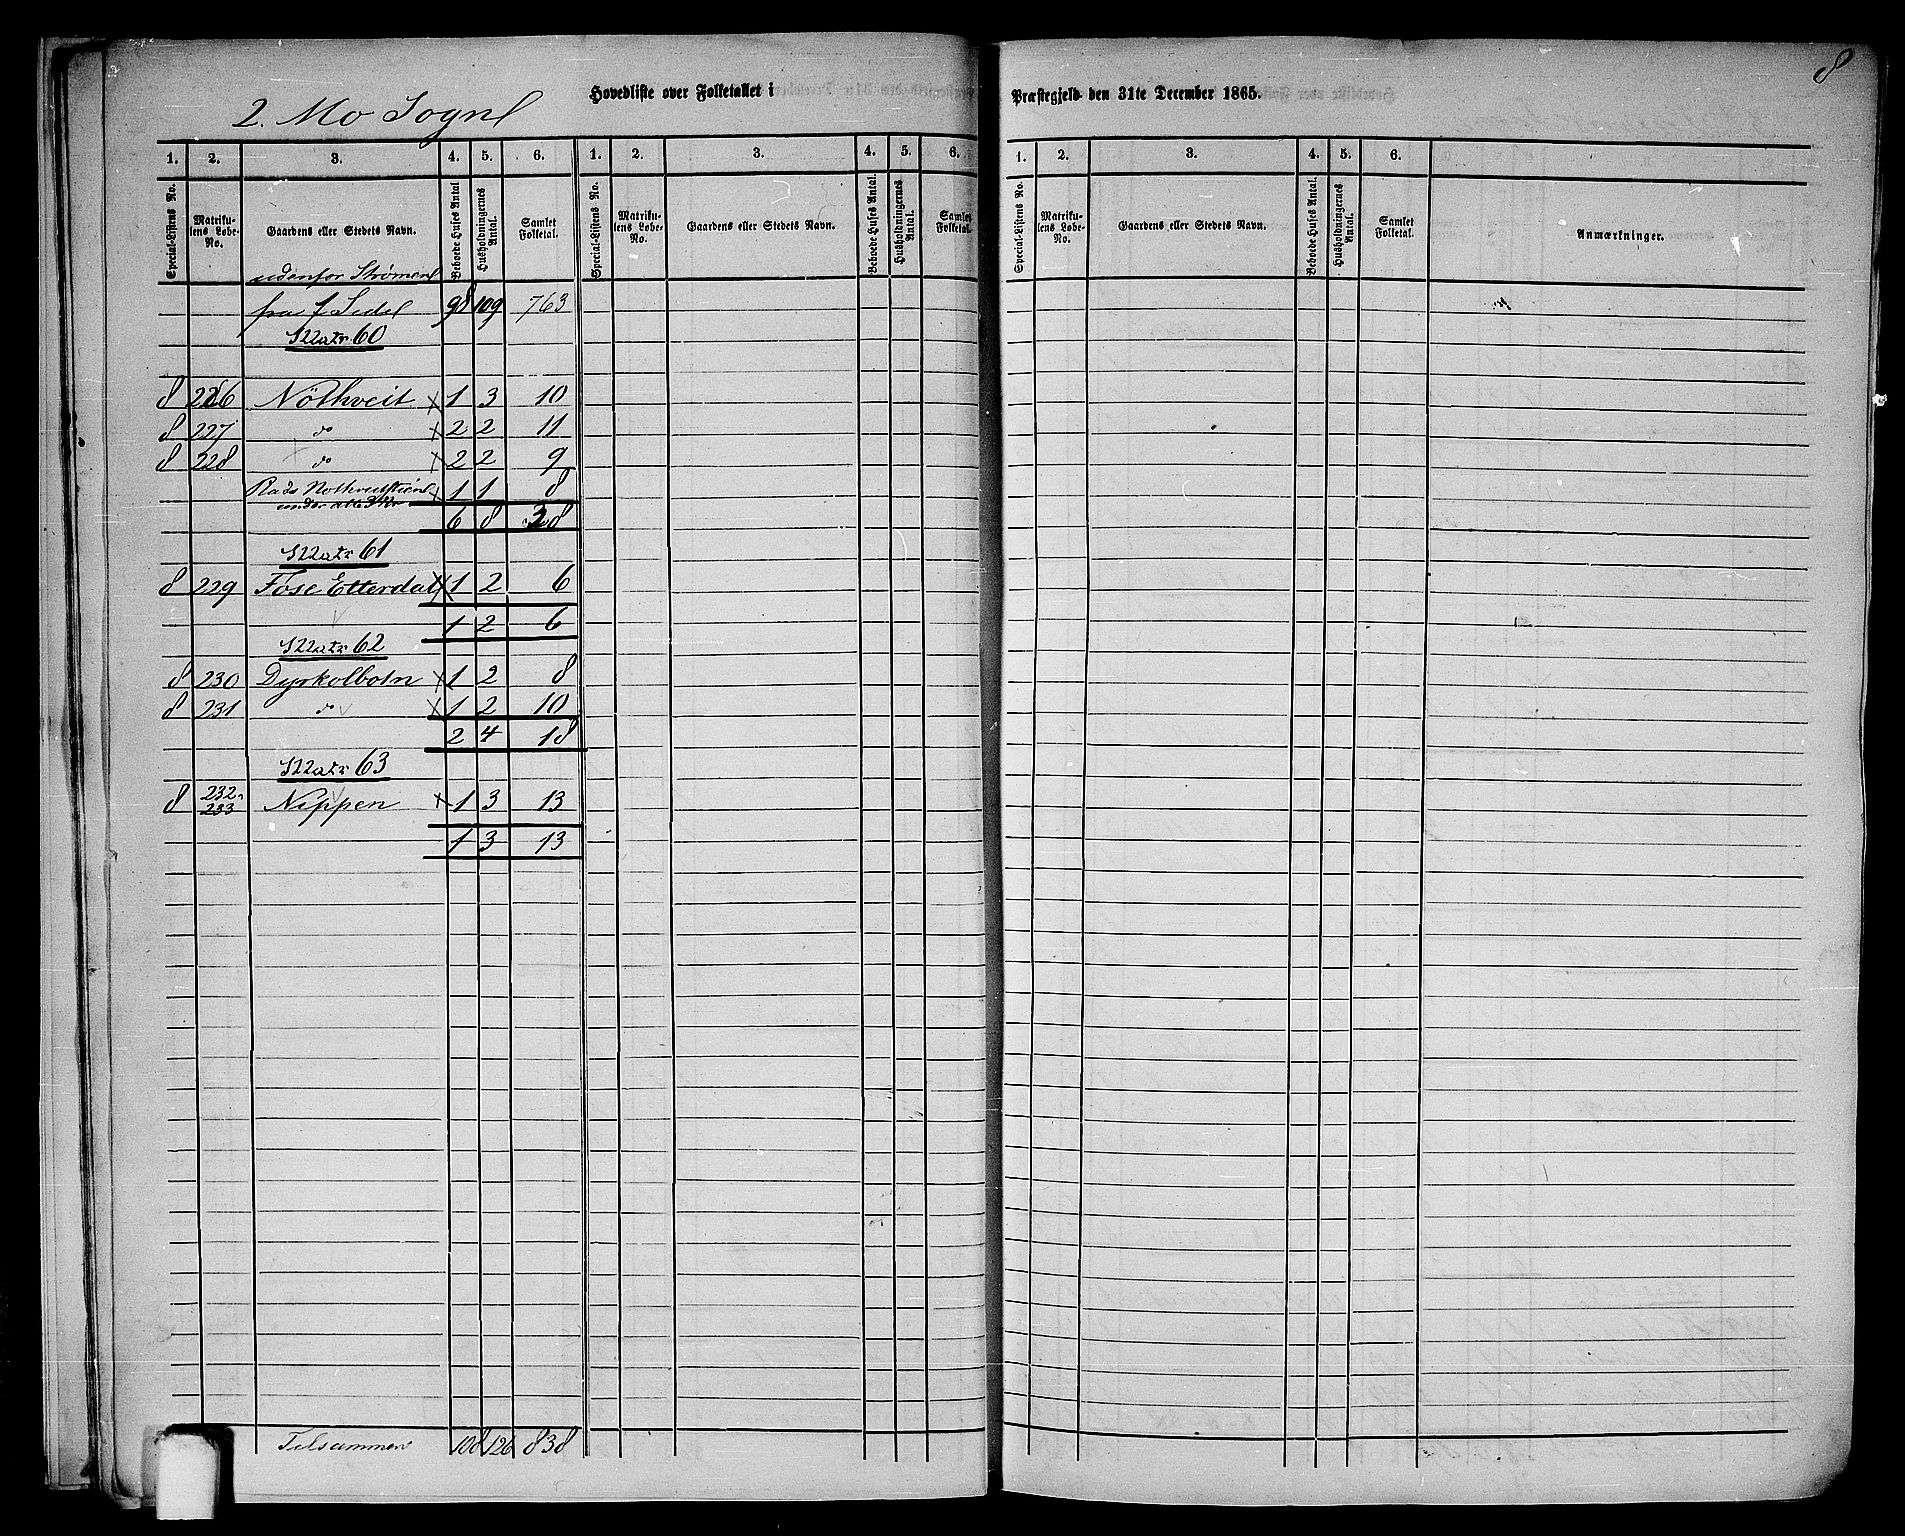 8
Hovedliste over Folketallet i Præstegjeld den 31te December 1865.
2. Mo Sogn
1. 2. 3. 4. 5. 6. 1. 2. 3. 4. 5. 6. 1. 2. 3. 4. 5. 6.
Special-Listens No. Matrikulens Løbe-No. Gaardens eller Stedets Navn. Beboede Huses Antal Husholdningernes Antal. Samlet Folketal. Special-Listens No. Matrikulens Løbe-No. Gaardens eller Stedets Navn. Beboede Huses Antal. Husholdningernes Antal. Samlet Folketal. Special-Listens No. Matrikulens Løbe-No. Gaardens eller Stedets Navn. Beboede Huses Antal. Husholdningernes Antal. Samlet Folketal. Anmærkninger.
udenfor Strømen
fra f Side 98 109 763
Matr 60
8 226 Nöthveit x 1 3 10
8 227 do x 2 2 11
8 228 do x 2 2 9
x 1 1 8
under alle 3 Nr
6 8 38
Matr 61
8 229 Fose Etterdal x 1 2 6
1 2 6
Matr 62
8 230 Dyrkolbotn x 1 2 8
8 231 do x 1 2 10
2 4 18
Matr 63
8 232 233 Nippen x 1 3 13
1 3 13
Tilsammen 108 126 838